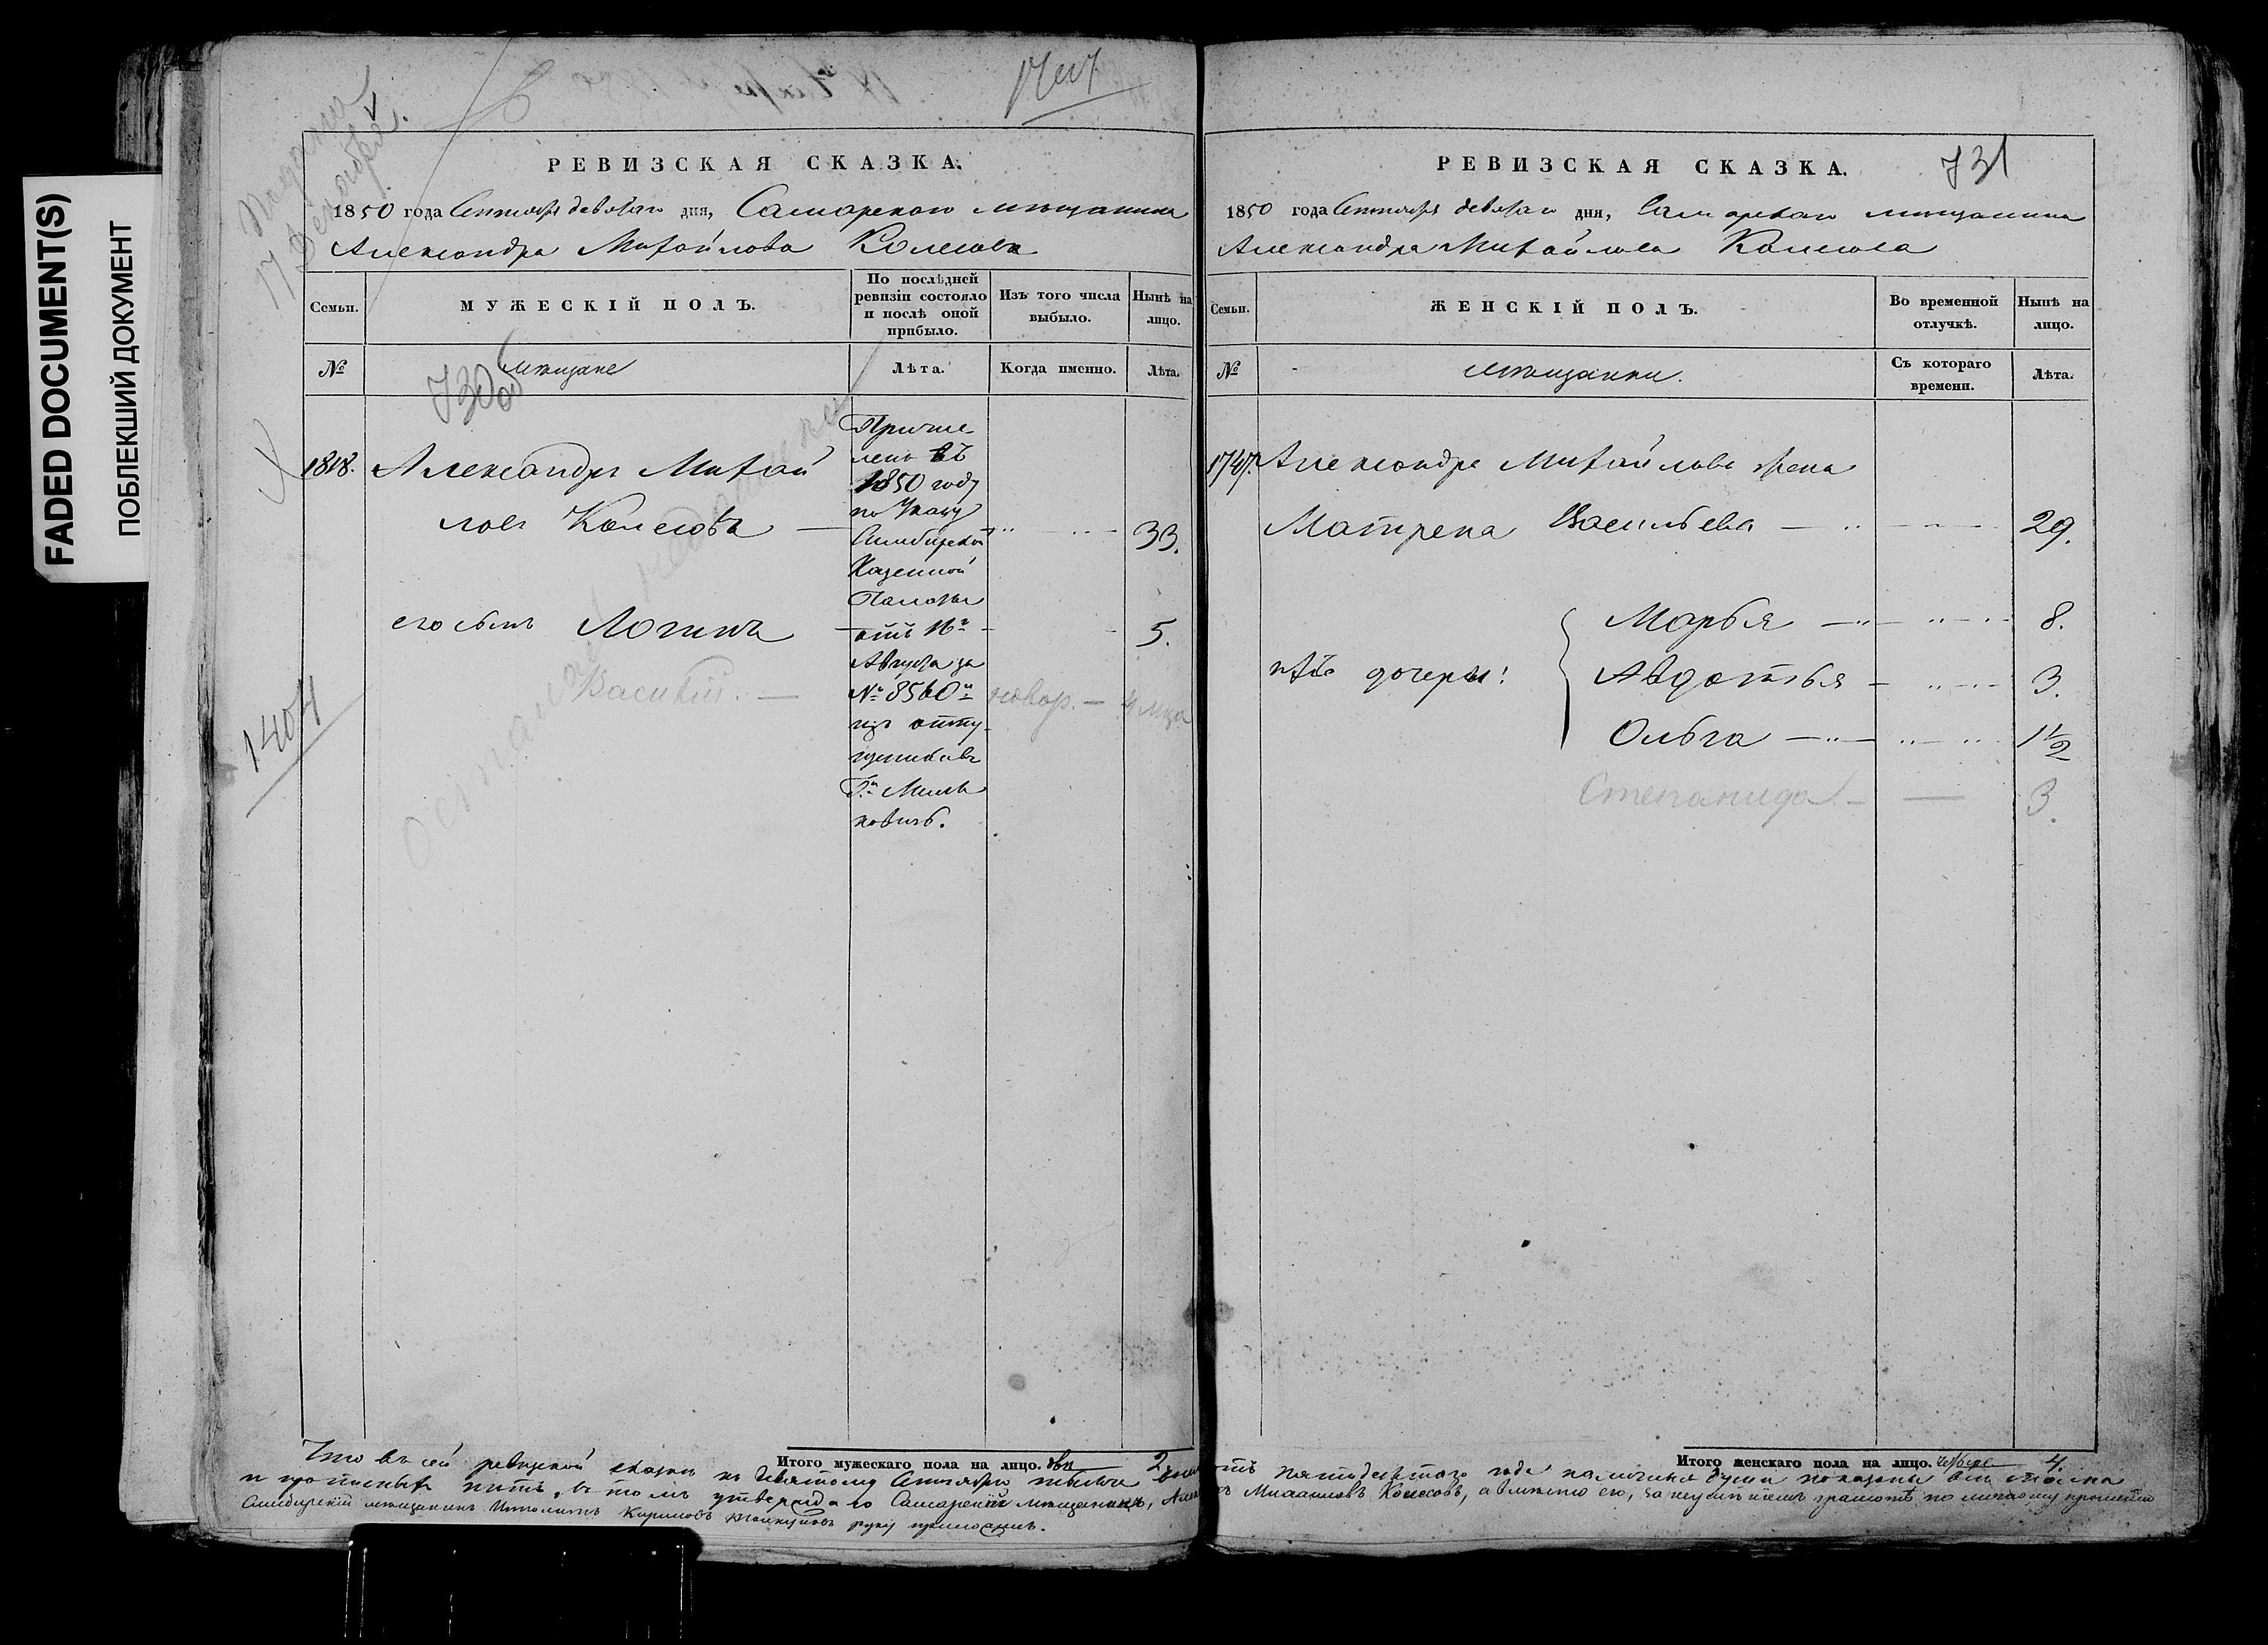 FADED DOCUMENT(S)
ПОБЛЕКШИЙ ДОКУМЕНТ
Подана
17 Декабря.
1404
РЕВИЗСКАЯ СКАЗКА.
1850 года Сентября девятаго дня, Самарскаго мѣщанина
Александра Михайлова Колесова
Семьи.
МУЖЕСКІЙ ПОЛЪ.
По послѣдней ревизіи состояло и послѣ оной прибыло.
Изъ того числа выбыло.
Нынѣ на лицо.
№
730 об
мѣщане
Лѣта.
Когда именно.
Лѣта.
Александръ Михай
ловъ Колесовъ — 33.
его сынъ Логинъ — 5.
Василій. — новор. —
Причис
ленъ въ
1850 году
по Указу
Симбирской
Казенной
Палаты
отъ 16го
Августа за
№ 8560м
изъ отпу
щенниковъ
Гжи Мильковичь.
РЕВИЗСКАЯ СКАЗКА.
731
1850 года Сентября девятаго дня, Самарскаго мѣщанина
Александра Михайлова Колесова
Семьи.
ЖЕНСКІЙ ПОЛЪ.
Во временной отлучкѣ.
Нынѣ на лицо.
№
мѣщанки.
Съ котораго времени.
Лѣта.
1747. Александра Михайлова жена
Матрена Васильева — 29.
ихъ дочери:
Марья — 8.
Авдотья — 3.
Ольга — 1½
Степанида — 3.
Итого мужескаго пола на лицо. два 2
Итого женскаго пола на лицо. четыре 4.
Что въ сей ревизской сказкѣ къ девятому Сентября тысяча восемь
сотъ пятьдесятаго года наличныя души показаны всѣ
и прописныхъ нѣтъ, въ томъ утверждаю Самарскій мѣщанинъ, Александръ Михаиловъ Колесовъ, а вмѣсто его, за неумѣніемъ грамотѣ по личному прошенію
Симбирскій мѣщанинъ Кириловъ руку приложилъ.